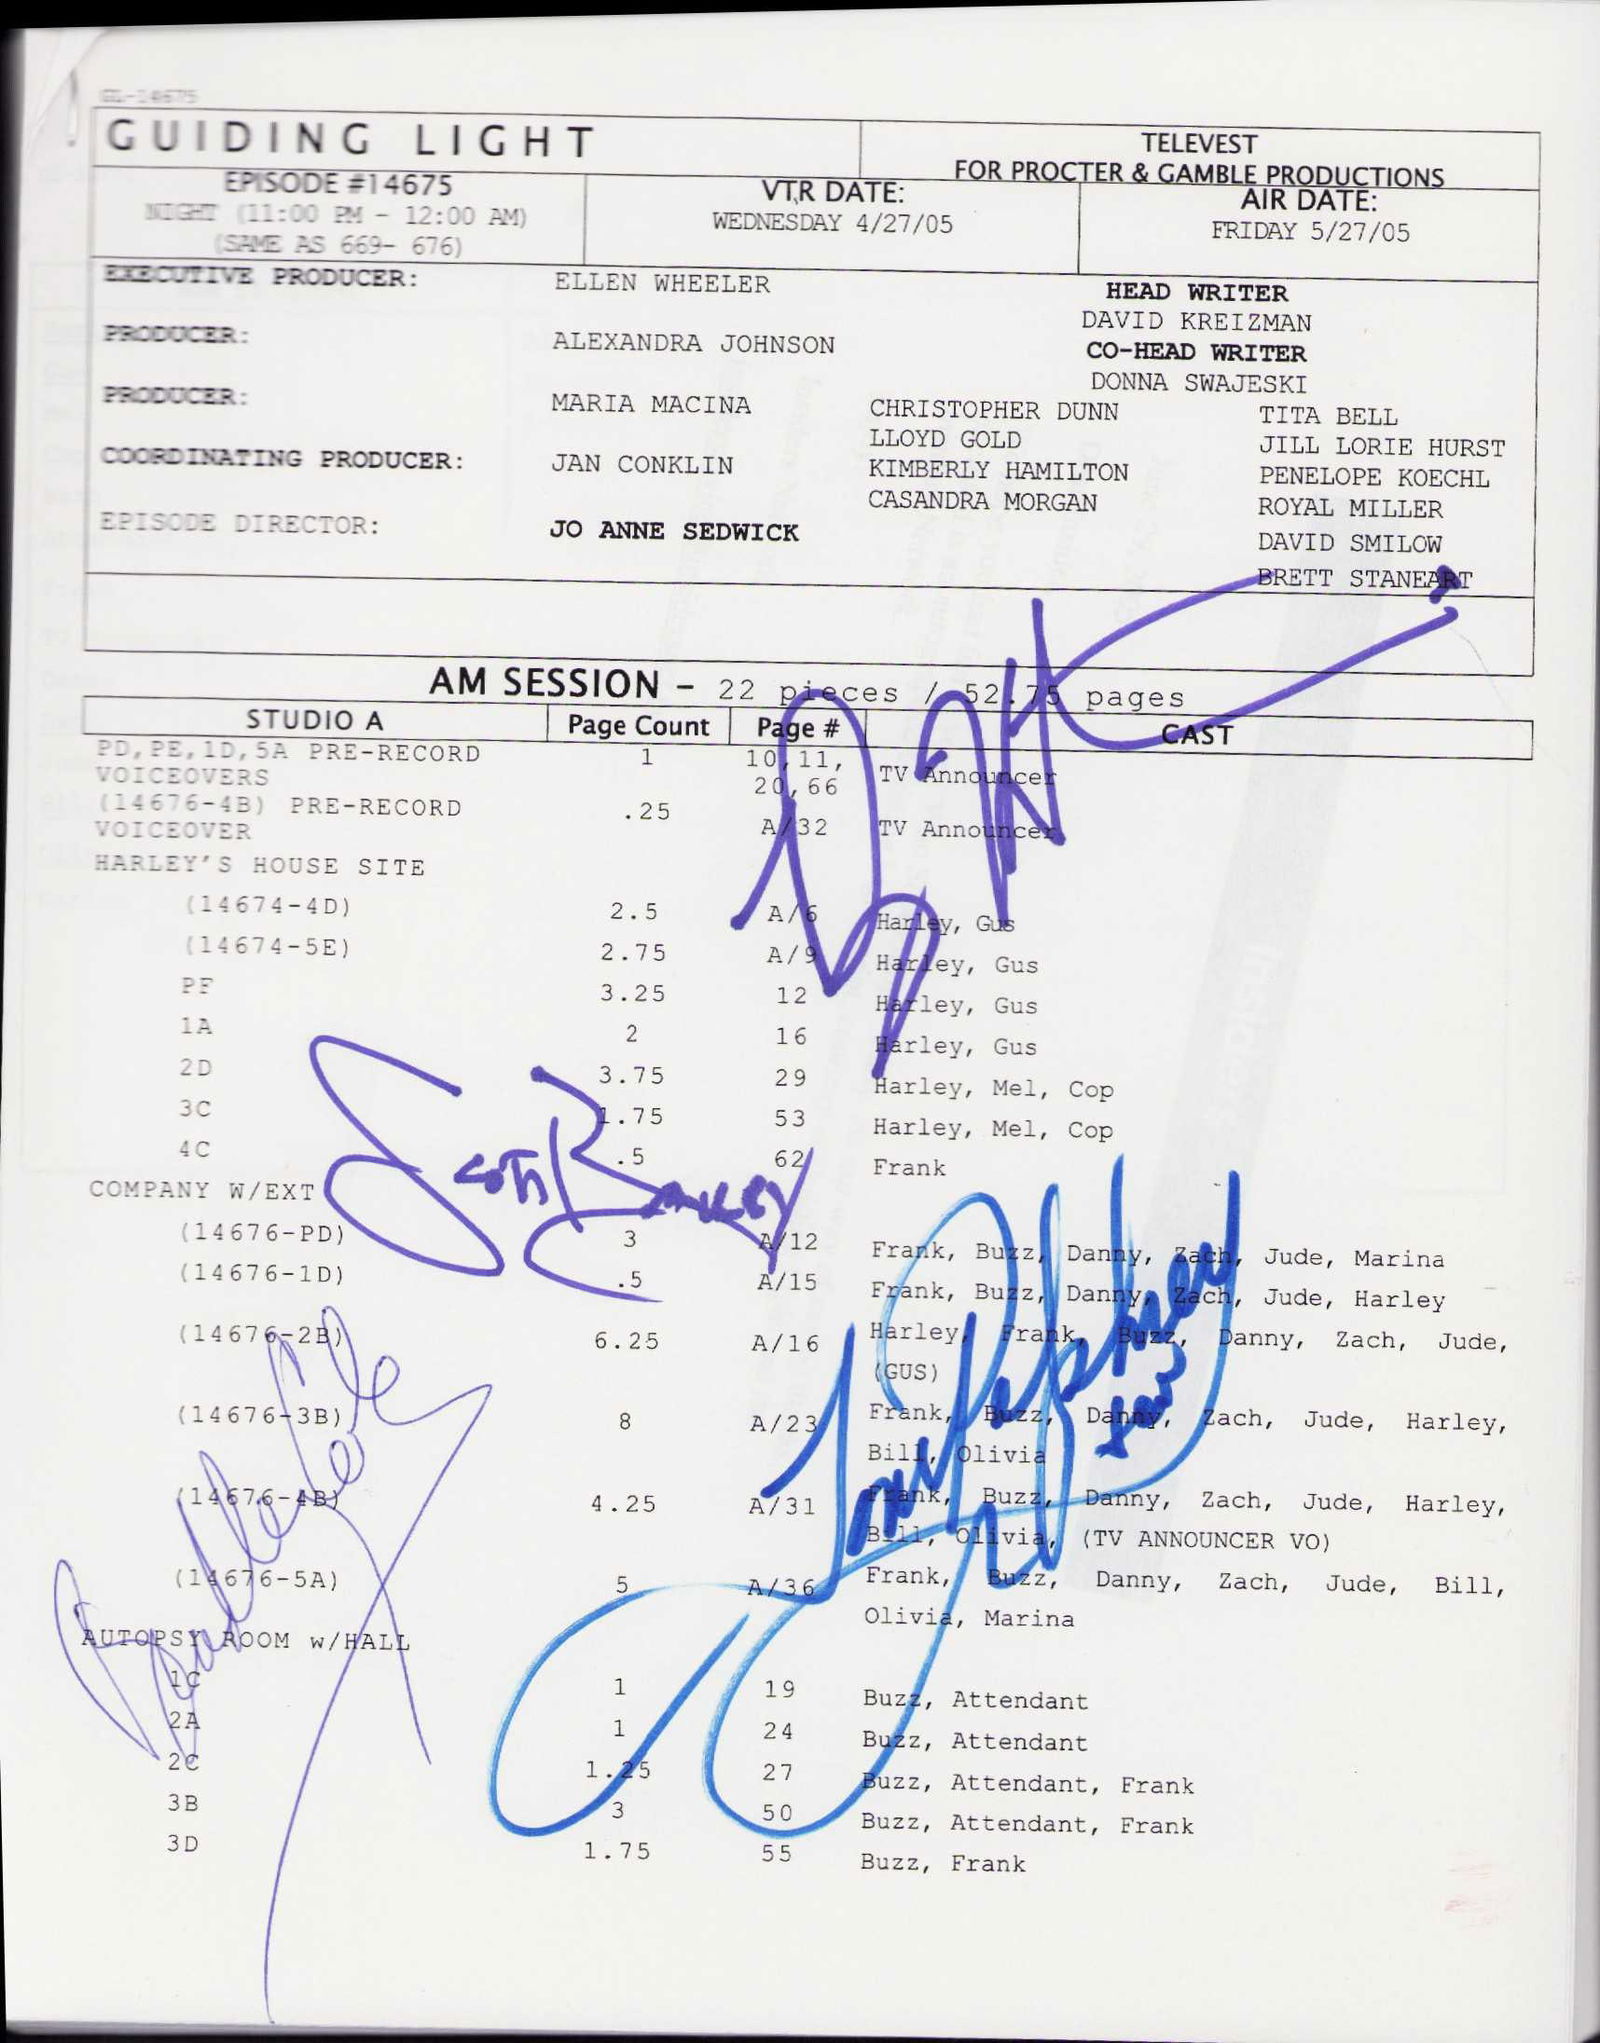 GL-14675
GUIDING LIGHT
TELEVEST
FOR PROCTER & GAMBLE PRODUCTIONS
EPISODE #14675
NIGHT (11:00 PM - 12:00 AM)
(SAME AS 669- 676)
VTR DATE:
WEDNESDAY 4/27/05
AIR DATE:
FRIDAY 5/27/05
EXECUTIVE PRODUCER: ELLEN WHEELER
PRODUCER: ALEXANDRA JOHNSON
PRODUCER: MARIA MACINA
COORDINATING PRODUCER: JAN CONKLIN
EPISODE DIRECTOR: JO ANNE SEDWICK
HEAD WRITER
DAVID KREIZMAN
CO-HEAD WRITER
DONNA SWAJESKI
CHRISTOPHER DUNN TITA BELL
LLOYD GOLD JILL LORIE HURST
KIMBERLY HAMILTON PENELOPE KOECHL
CASANDRA MORGAN ROYAL MILLER
DAVID SMILOW
BRETT STANEART
AM SESSION - 22 pieces / 52.75 pages
STUDIO A Page Count Page # CAST
PD,PE,1D,5A PRE-RECORD 1 10,11, TV Announcer
VOICEOVERS 20,66
(14676-4B) PRE-RECORD .25
VOICEOVER A/32 TV Announcer
HARLEY'S HOUSE SITE
(14674-4D) 2.5 A/6 Harley, Gus
(14674-5E) 2.75 A/9 Harley, Gus
PF 3.25 12 Harley, Gus
1A 2 16 Harley, Gus
2D 3.75 29 Harley, Mel, Cop
3C 1.75 53 Harley, Mel, Cop
4C .5 62 Frank
Scott Bailey
COMPANY W/EXT
(14676-PD) 3 A/12 Frank, Buzz, Danny, Zach, Jude, Marina
(14676-1D) .5 A/15 Frank, Buzz, Danny, Zach, Jude, Harley
(14676-2B) 6.25 A/16 Harley, Frank, Buzz, Danny, Zach, Jude,
(GUS)
(14676-3B) 8 A/23 Frank, Buzz, Danny, Zach, Jude, Harley,
Bill, Olivia
(14676-4B) 4.25 A/31 Frank, Buzz, Danny, Zach, Jude, Harley,
Bill, Olivia, (TV ANNOUNCER VO)
(14676-5A) 5 A/36 Frank, Buzz, Danny, Zach, Jude, Bill,
Olivia, Marina
Bradley Cole
AUTOPSY ROOM w/HALL
1C 1 19 Buzz, Attendant
2A 1 24 Buzz, Attendant
2C 1.25 27 Buzz, Attendant, Frank
3B 3 50 Buzz, Attendant, Frank
3D 1.75 55 Buzz, Frank